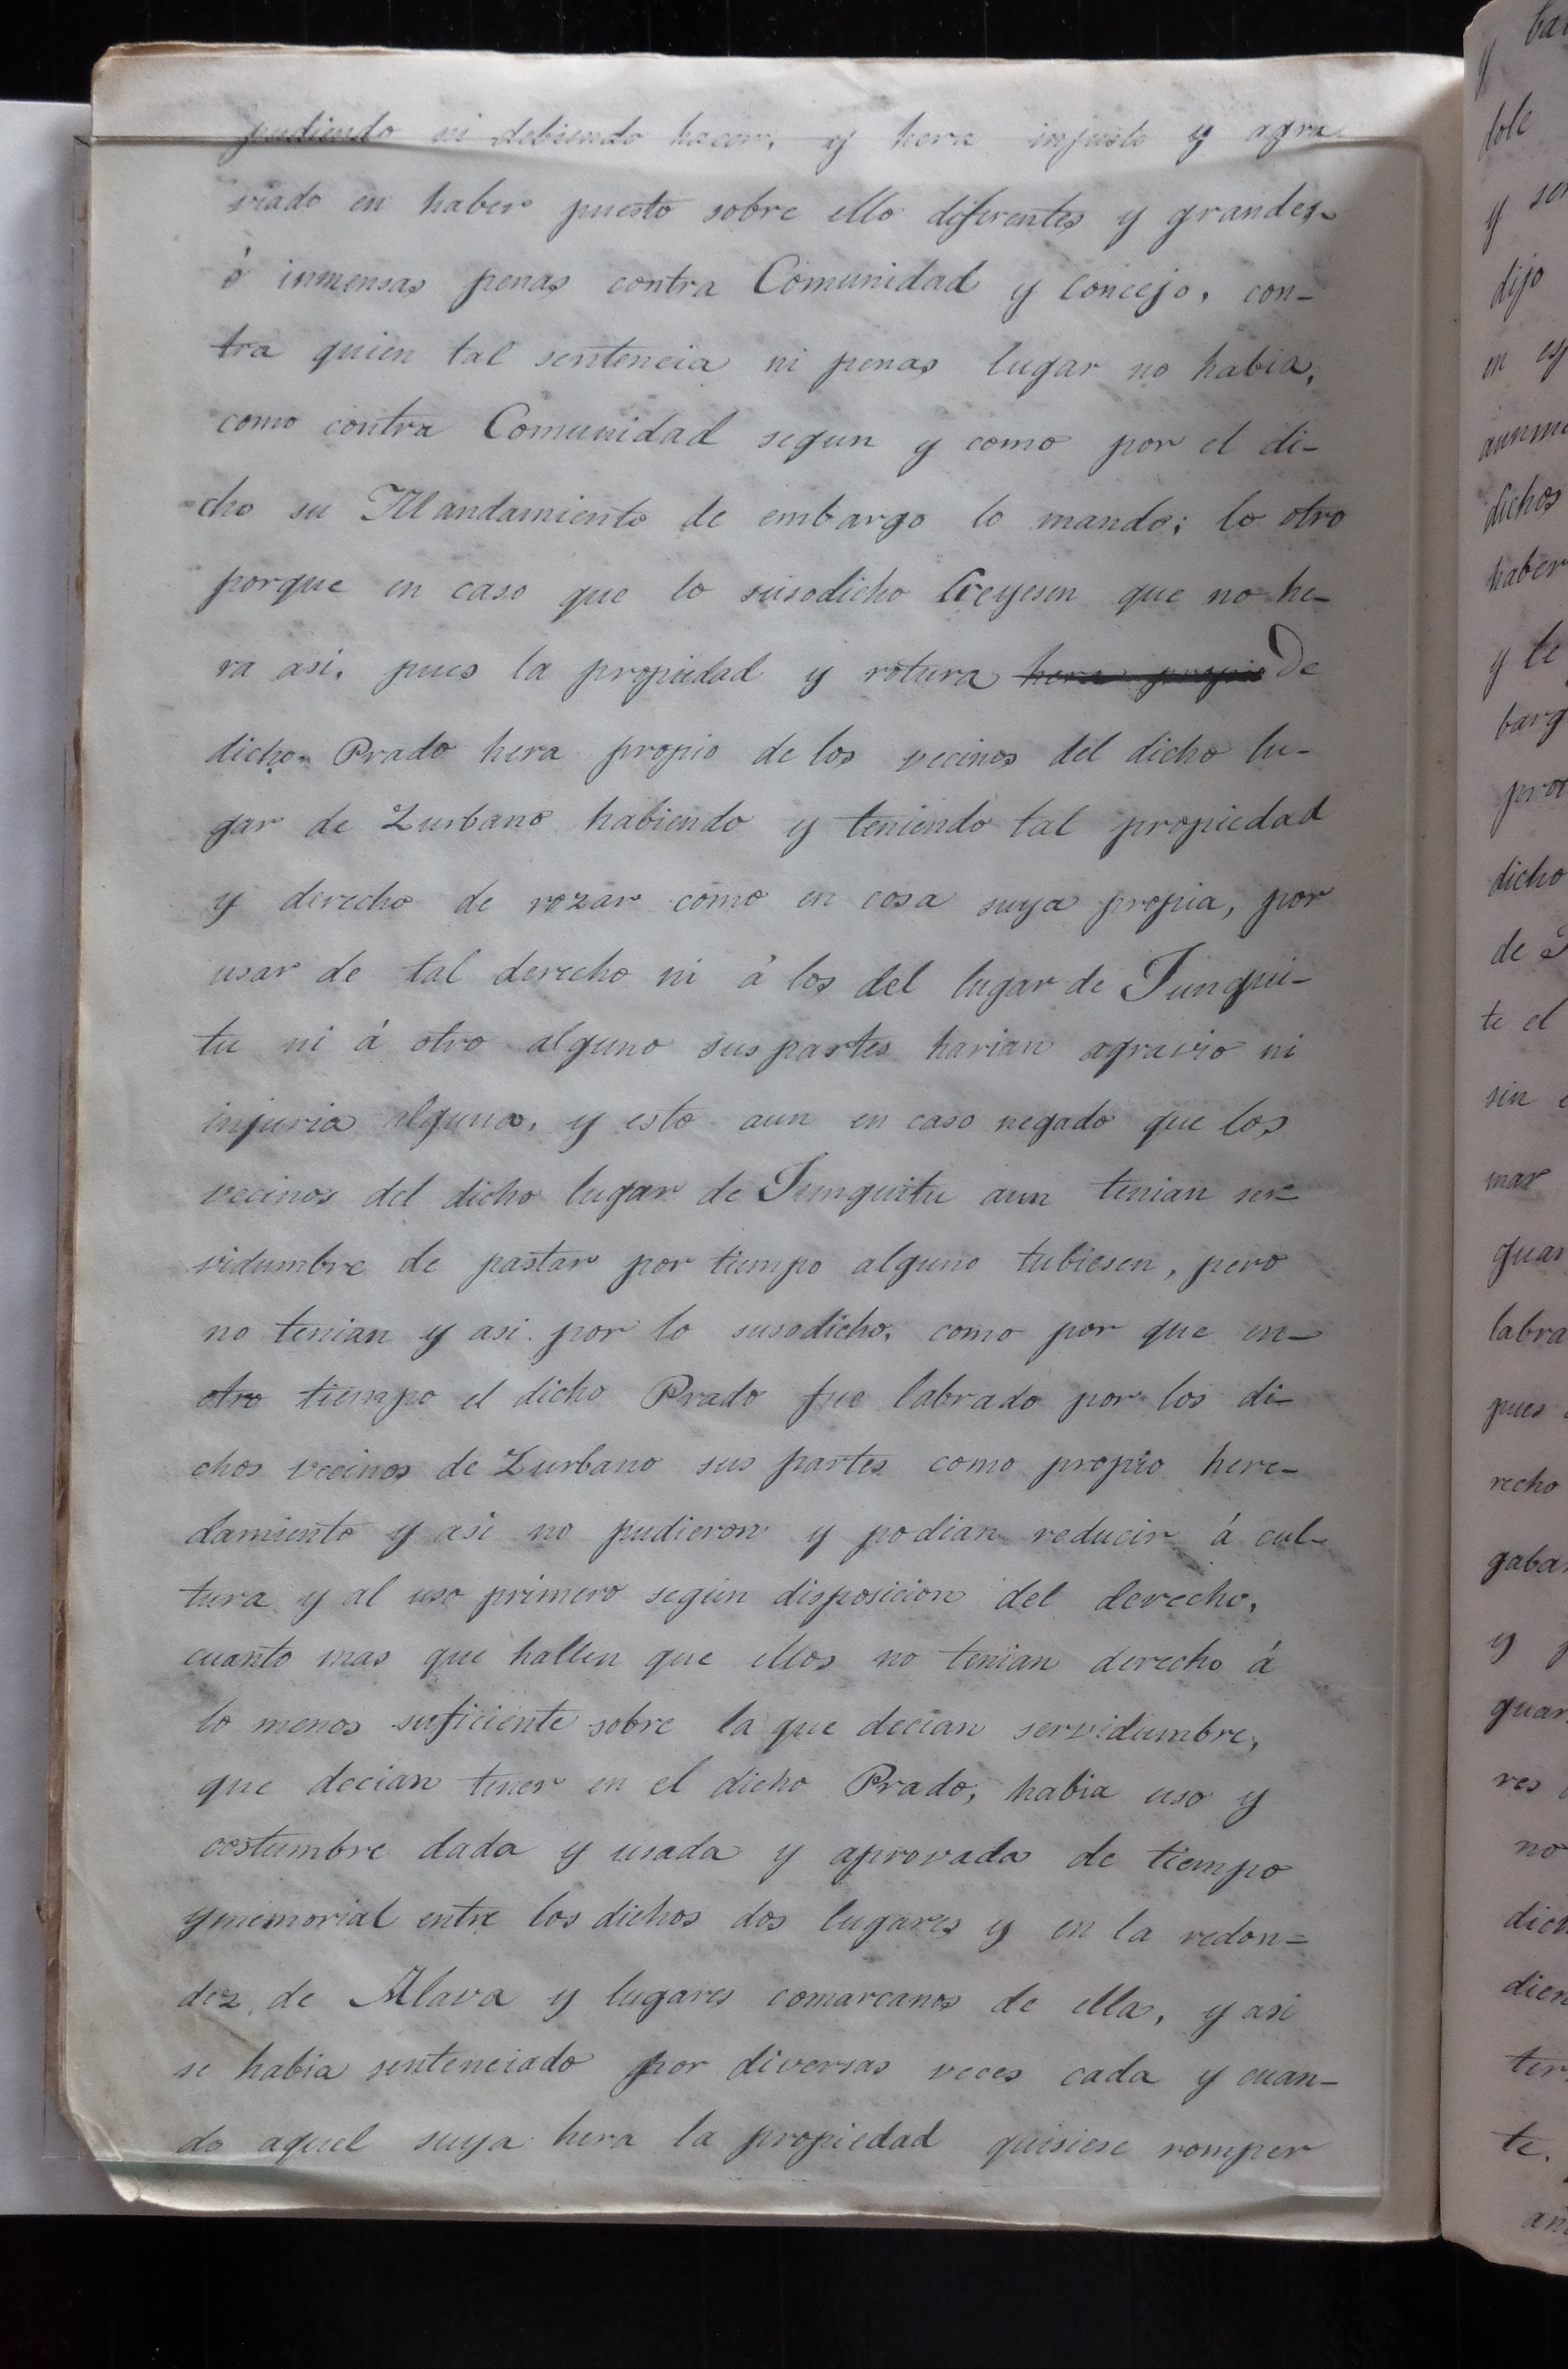 pudiendo ni debiendo hacer, y hera injusto y agra
viado en haber puesto sobre ello diferentes y grandes
é inmensas penas contra Comunidad y Concejo, con-
tra quien tal sentencia ni penas lugar no habia,
como contra Comunidad segun y como por el di-
cho su Mandamiento de embargo lo mando; lo otro
porque en caso que lo susodicho Creyesen que no he-
ra asi, pues la propiedad y rotura hera propio De
dicho Prado hera propio de los vecinos del dicho lu-
gar de Zurbano habiendo y teniendo tal propiedad
y derecho de rozar como en cosa suya propia, por
usar de tal derecho ni á los del lugar de Jungui-
tu ni á otro alguno sus partes harian agravio ni
injuria alguna, y esto aun en caso negado que los
vecinos del dicho lugar de Junguitu aun tenian ser-
vidumbre de pastar por tiempo alguno tubiesen, pero
no tenian y asi por lo susodicho, como por que en-
otro tiempo el dicho Prado fue labrado por los di-
chos vecinos de Zurbano sus partes como propio here-
damiento y asi no pudieron y podian reducir á cul-
tura y al uso primero según disposicion del derecho,
cuanto mas que hallen que ellos no tenian derecho á
lo menos suficiente sobre la que decian servidumbre,
que decian tener en el dicho Prado, habia uso y
costumbre dada y usada y aprovada de tiempo
ymemorial entre los dichos dos lugares y en la redon=
dez de Alava y lugares comarcanos de ella, y asi
se habia sentenciado por diversas veces cada y cuan-
do aquel suya hera la propiedad quisiese romper